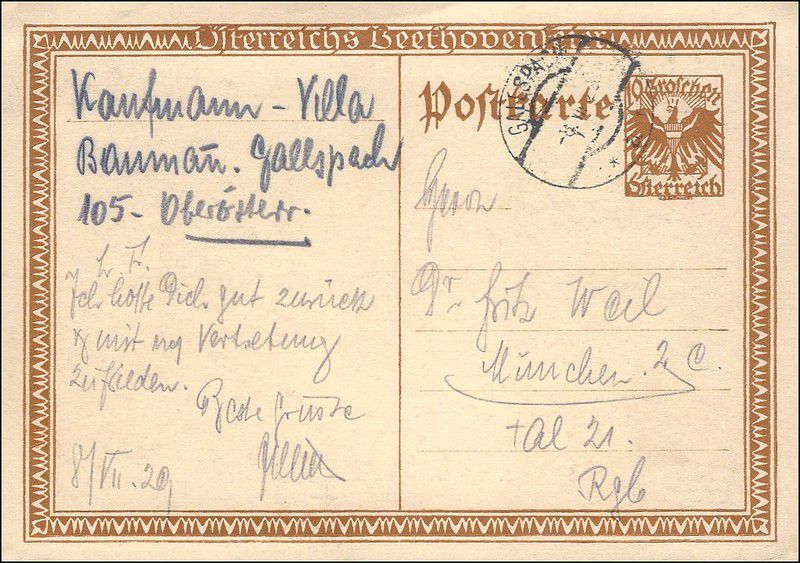 Österreichs Beethovenfeier
Kaufmann - Villa
Bauman̄. Gallspach
105 - Oberösterr.
L. F.
Ich hoffe Dich gut zurück
& mit Vertretung
zufrieden.
Beste Grüsse
8/VII. 29
Postkarte
GALLSPACH
10 Groschen
Österreich
Herrn
Dr. Fritz Weil
München. 2 C.
Tal 21.
Rgb